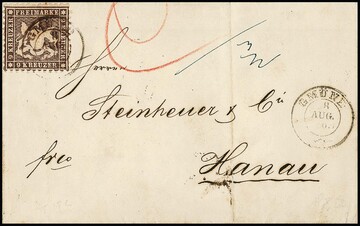 FREIMARKE
9 KREUZER
9 KREUZER
9 KREUZER
Herren
Steinheuer & Cie
frco
Hanau
GMÜND
8
AUG.